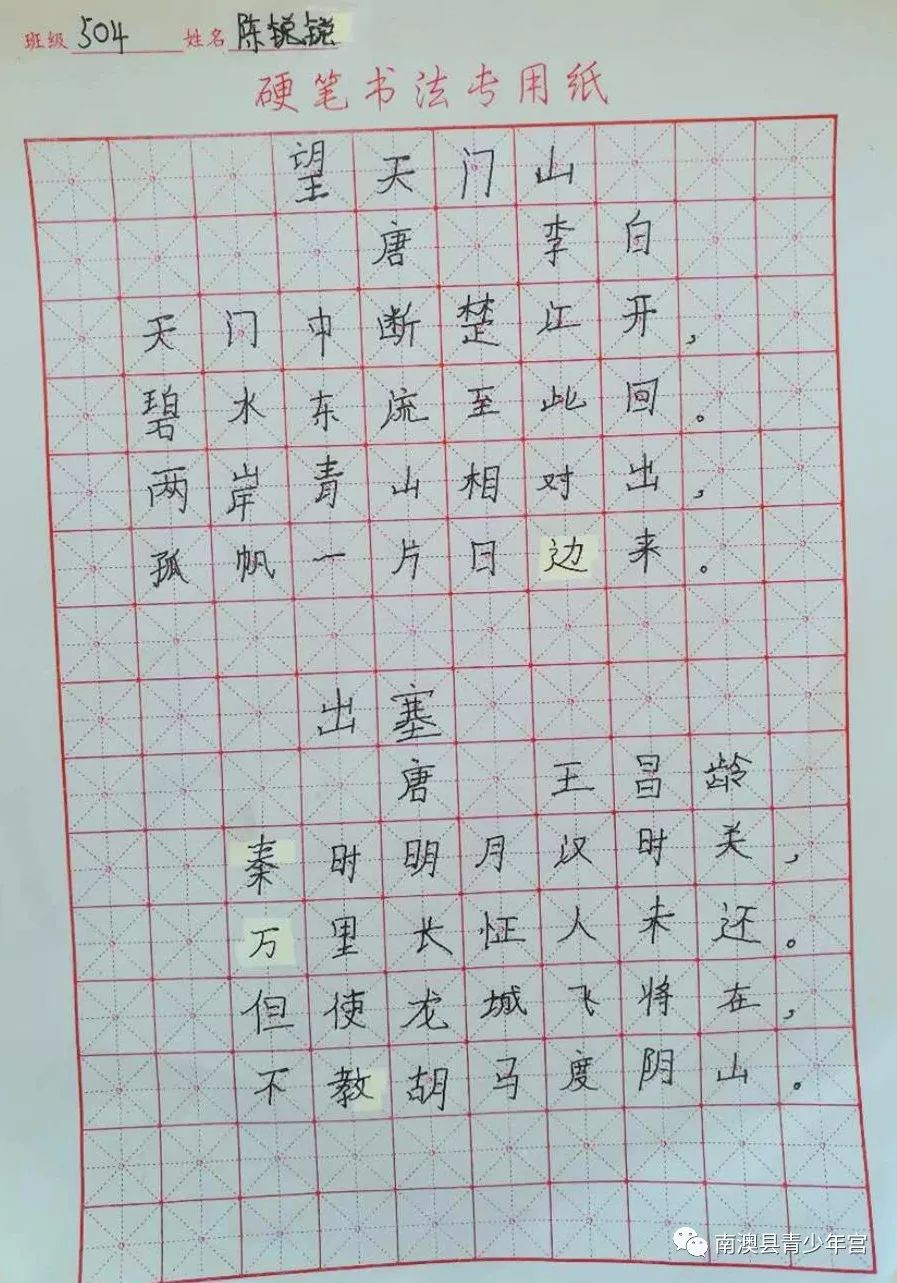 班级 504 姓名 陈锐锐
硬笔书法专用纸
望天门山
唐 李白
天门中断楚江开，
碧水东流至此回。
两岸青山相对出，
孤帆一片日边来。
出塞
唐 王昌龄
秦时明月汉时关，
万里长怔人未还。
但使龙城飞将在，
不教胡马度阴山。
南澳县青少年宫